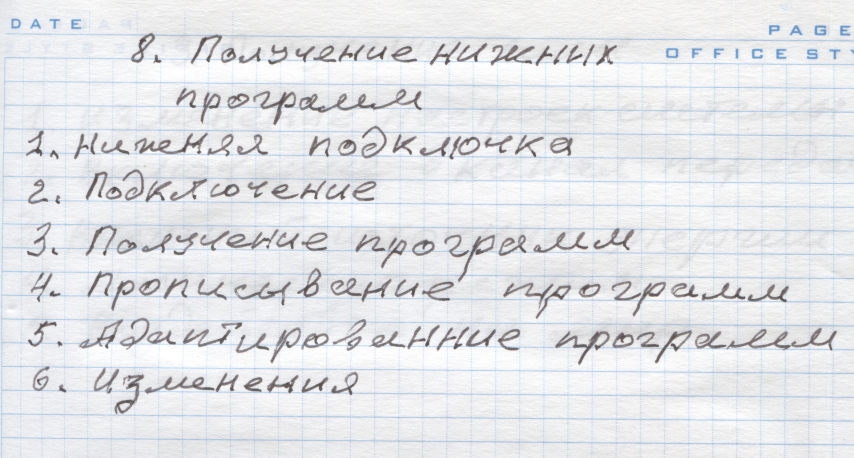 DATE
PAGE
OFFICE STY
8. Получение нижних
программ
1. Нижняя подключка
2. Подключение
3. Получение программ
4. Прописывание программ
5. Адаптированние программ
6. Изменения